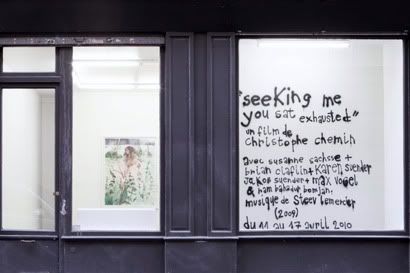 "seeking me
you sat exhausted"
un film de
christophe chemin
avec susanne sachsse +
brian claflin + Karen suender
Jakob suender + max vogel
& ram bahadur bomjan,
musique de Steev Lemercier
(2009)
du 11 au 17 avril 2010